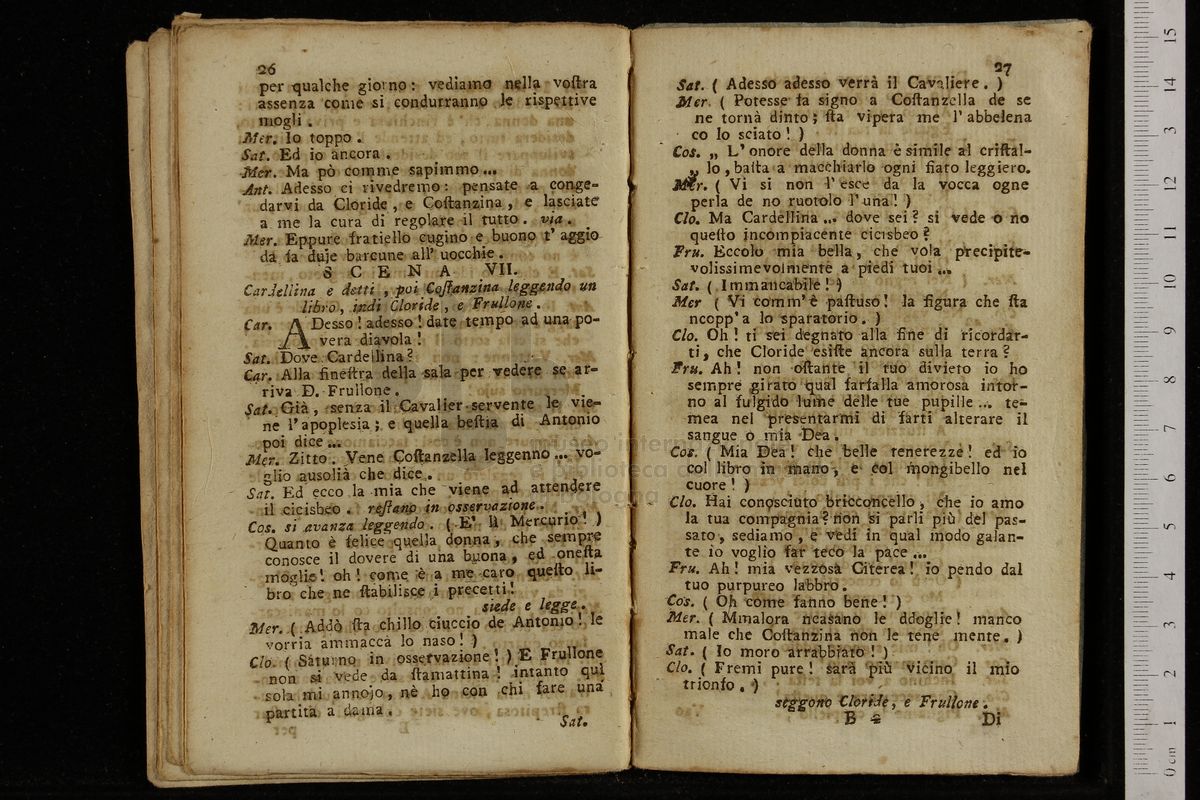 26
per qualche giorno : vediamo nella voſtra
assenza come si condurranno le rispettive
mogli .
Mer. Io toppo .
Sat. Ed io ancora .
Mer. Ma pò comme sapimmo ...
Ant. Adesso ci rivedremo : pensate a conge-
darvi da Cloride , e Coſtanzina , e lasciate
a me la cura di regolare il tutto . via .
Mer. Eppure fratiello cugino e buono t' aggio
da fa duje barcune all' uocchie .
S C E N A VII.
Cardellina e detti , poi Coſtanzina leggendo un
libro , indi Cloride , e Frullone .
Car. ADesso ! adesso ! date tempo ad una po-
vera diavola !
Sat. Dove Cardellina ?
Car. Alla fineſtra della sala per vedere se ar-
riva D. Frullone .
Sat. Già , senza il Cavalier servente le vie-
ne l' apoplesia ; e quella beſtia di Antonio
poi dice ...
Mer. Zitto . Vene Coſtanzella leggenno ... vo-
glio ausolià che dice .
Sat. Ed ecco la mia che viene ad attendere
il cicisbeo . reſtano in osservazione .
Cos. si avanza leggendo . ( E' lì Mercurio ! )
Quanto è felice quella donna , che sempre
conosce il dovere di una buona , ed oneſta
moglie ! oh ! come è a me caro queſto li-
bro che ne ſtabilisce i precetti !
siede e legge .
Mer. ( Addò ſta chillo ciuccio de Antonio ! le
vorria ammaccà lo naso ! )
Clo. ( Saturno in osservazione ! ) E Frullone
non si vede da ſtamattina ! intanto quì
sola mi annojo , nè ho con chi fare una
partita a dama .
Sat.
27
Sat. ( Adesso adesso verrà il Cavaliere . )
Mer. ( Potesse fa signo a Coſtanzella de se
ne tornà dinto ; ſta vipera me l' abbelena
co lo sciato ! )
Cos. „ L' onore della donna è simile al criſtal-
„ lo , baſta a macchiarlo ogni fiato leggiero.
Mer. ( Vi si non l' esce da la vocca ogne
perla de no ruotolo l' una ! )
Clo. Ma Cardellina ... dove sei ? si vede o no
queſto incompiacente cicisbeo ?
Fru. Eccolo mia bella , che vola precipite-
volissimevolmente a piedi tuoi ...
Sat. ( Immancabile ! )
Mer ( Vi comm' è paſtuso ! la figura che ſta
ncopp' a lo sparatorio . )
Clo. Oh ! ti sei degnato alla fine di ricordar-
ti , che Cloride esiſte ancora sulla terra ?
Fru. Ah ! non oſtante il tuo divieto io ho
sempre girato qual farfalla amorosa intor-
no al fulgido lume delle tue pupille ... te-
mea nel presentarmi di farti alterare il
sangue o mia Dea .
Cos. ( Mia Dea ! che belle tenerezze ! ed io
col libro in mano , e col mongibello nel
cuore ! )
Clo. Hai conosciuto bricconcello , che io amo
la tua compagnia ? non si parli più del pas-
sato , sediamo , e vedi in qual modo galan-
te io voglio far teco la pace ...
Fru. Ah ! mia vezzosa Citerea ! io pendo dal
tuo purpureo labbro .
Cos. ( Oh come fanno bene ! )
Mer. ( Mmalora ncasano le ddoglie ! manco
male che Coſtanzina non le tene mente . )
Sat. ( Io moro arrabbiato ! )
Clo. ( Fremi pure ! sarà più vicino il mio
trionfo . )
seggono Cloride , e Frullone .
B 2 Di